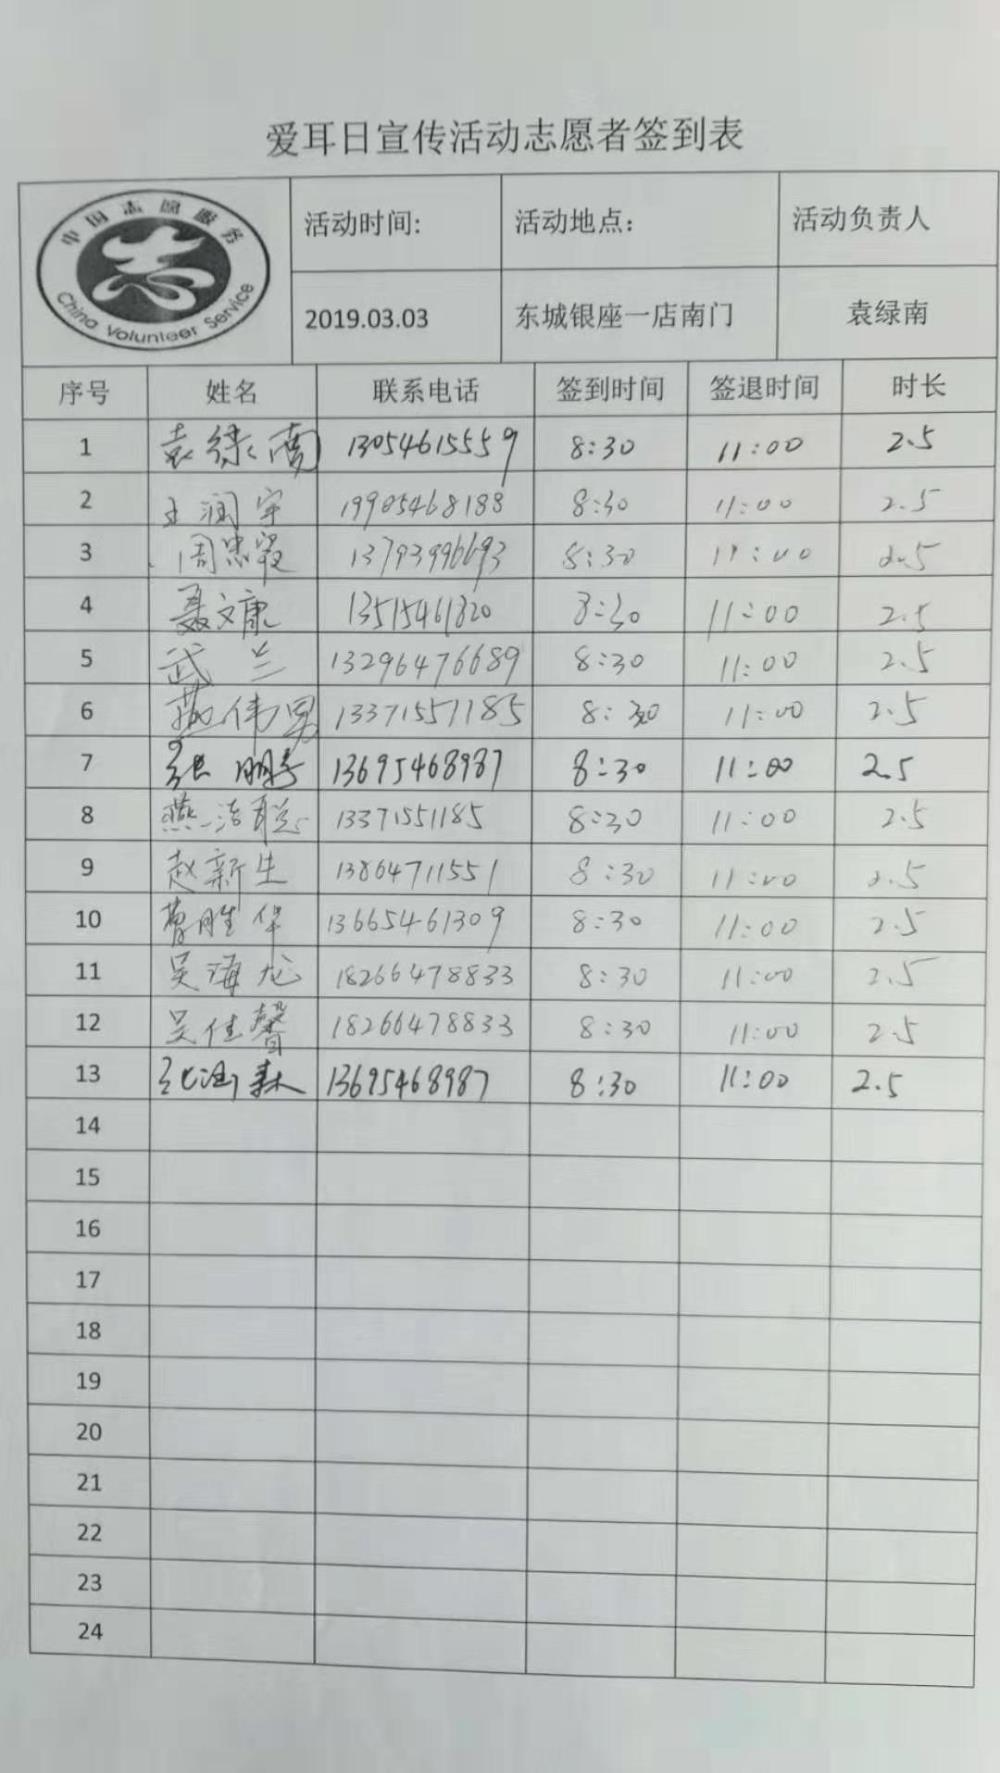 爱耳日宣传活动志愿者签到表
中国志愿服务
China Volunteer Service
活动时间: 活动地点： 活动负责人
2019.03.03 东城银座一店南门 袁绿南
序号 姓名 联系电话 签到时间 签退时间 时长
1 袁绿南 13054615559 8:30 11:00 2.5
2 王润宇 19905468188 8:30 11:00 2.5
3 周忠霞 13793996693 8:30 11:00 2.5
4 聂文康 13515461820 8:30 11:00 2.5
5 武兰 13296476689 8:30 11:00 2.5
6 燕伟男 13371551185 8:30 11:00 2.5
7 张鹏 13695468987 8:30 11:00 2.5
8 燕浩聪 13371551185 8:30 11:00 2.5
9 赵新生 13864711551 8:30 11:00 2.5
10 曹胜华 13665461309 8:30 11:00 2.5
11 吴海龙 18266478833 8:30 11:00 2.5
12 吴佳馨 18266478833 8:30 11:00 2.5
13 张涵森 13695468987 8:30 11:00 2.5
14
15
16
17
18
19
20
21
22
23
24